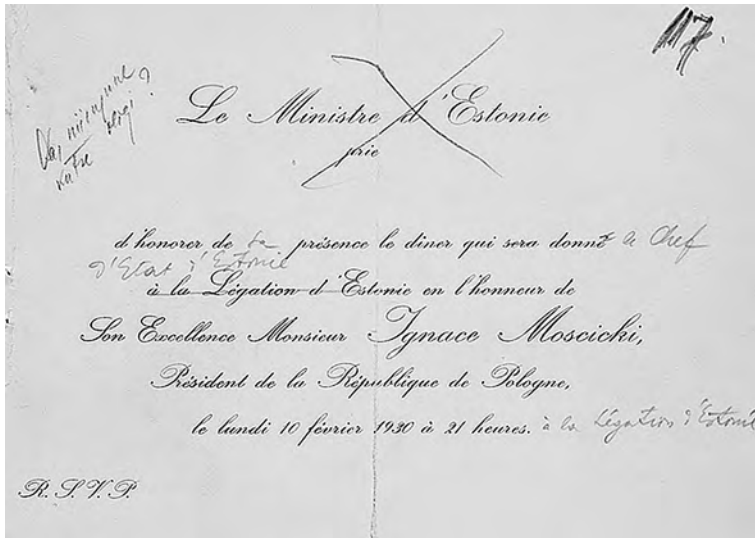 117.
Le Ministre d'Estonie
prie
d'honorer de sa présence le dîner qui sera donné le Chef
d'Etat d'Estonie
à la Légation d'Estonie en l'honneur de
Son Excellence Monsieur Ignace Moscicki,
Président de la République de Pologne,
le lundi 10 février 1930 à 21 heures. à la Légation d'Estonie
R. S. V. P.